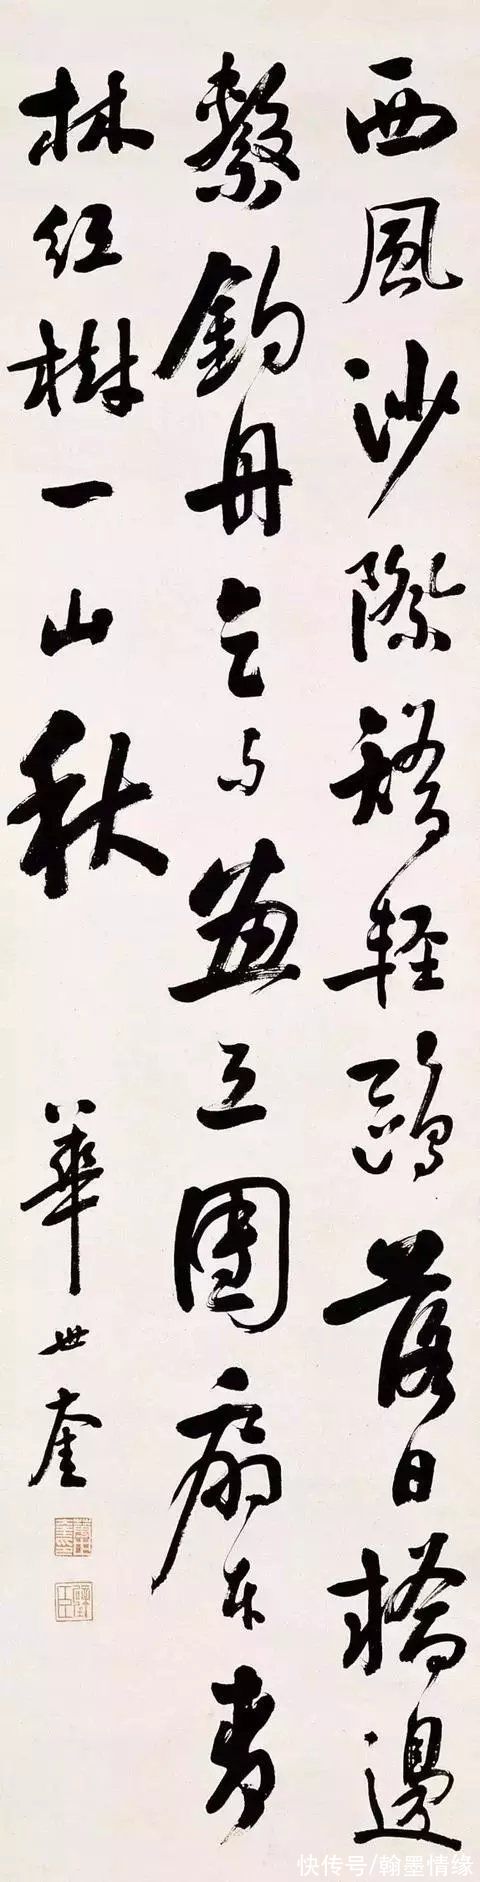 西風沙際矯輕鷗落日橋邊
繫釣舟乞与畫工團扇本青
林紅樹一山秋
華世奎
快传号/翰墨情缘